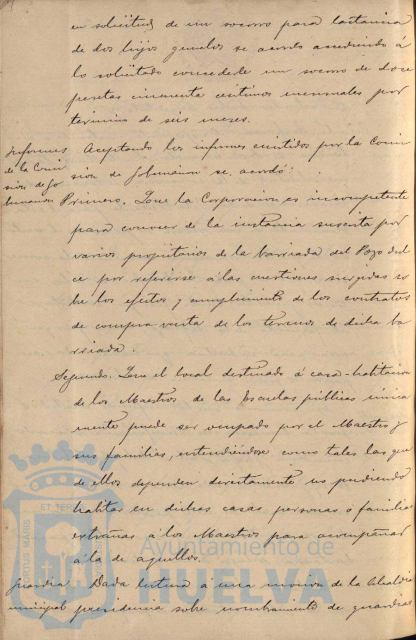 en solicitud de un socorro para lactancia
de dos hijos gemelos se acordo accediendo á
lo solicitado concederle un socorro de doce
pesetas cincuenta centimos mensuales por
termino de seis meses.
Informes
de la Comi
sion de Go
bernacion
Aceptando los informes emitidos por la Comi
sion de Gobernacion se acordó:
Primero. Que la Corporacion es incompetente
para conocer de la instancia suscrita por
varios propietarios de la barriada del Pozo dul
ce por referirse á las cuestiones surgidas so
bre los efectos y cumplimiento de los contratos
de compra venta de los terrenos de dicha ba
rriada.
Segundo. Que el local destinado á casa-habitacion
de los Maestros de las Escuelas públicas única
mente puede ser ocupado por el Maestro y
sus familias, entendiéndose como tales las que
de ellos dependen directamente no pudiendo
habitar en dichas casas personas ó familias
extrañas á los Maestros para acompañar
á la de aquellos.
Guardia
municipal
Dada lectura á una mocion de la Alcaldia
presidencia sobre nombramiento de guardias
Ayuntamiento de
HUELVA